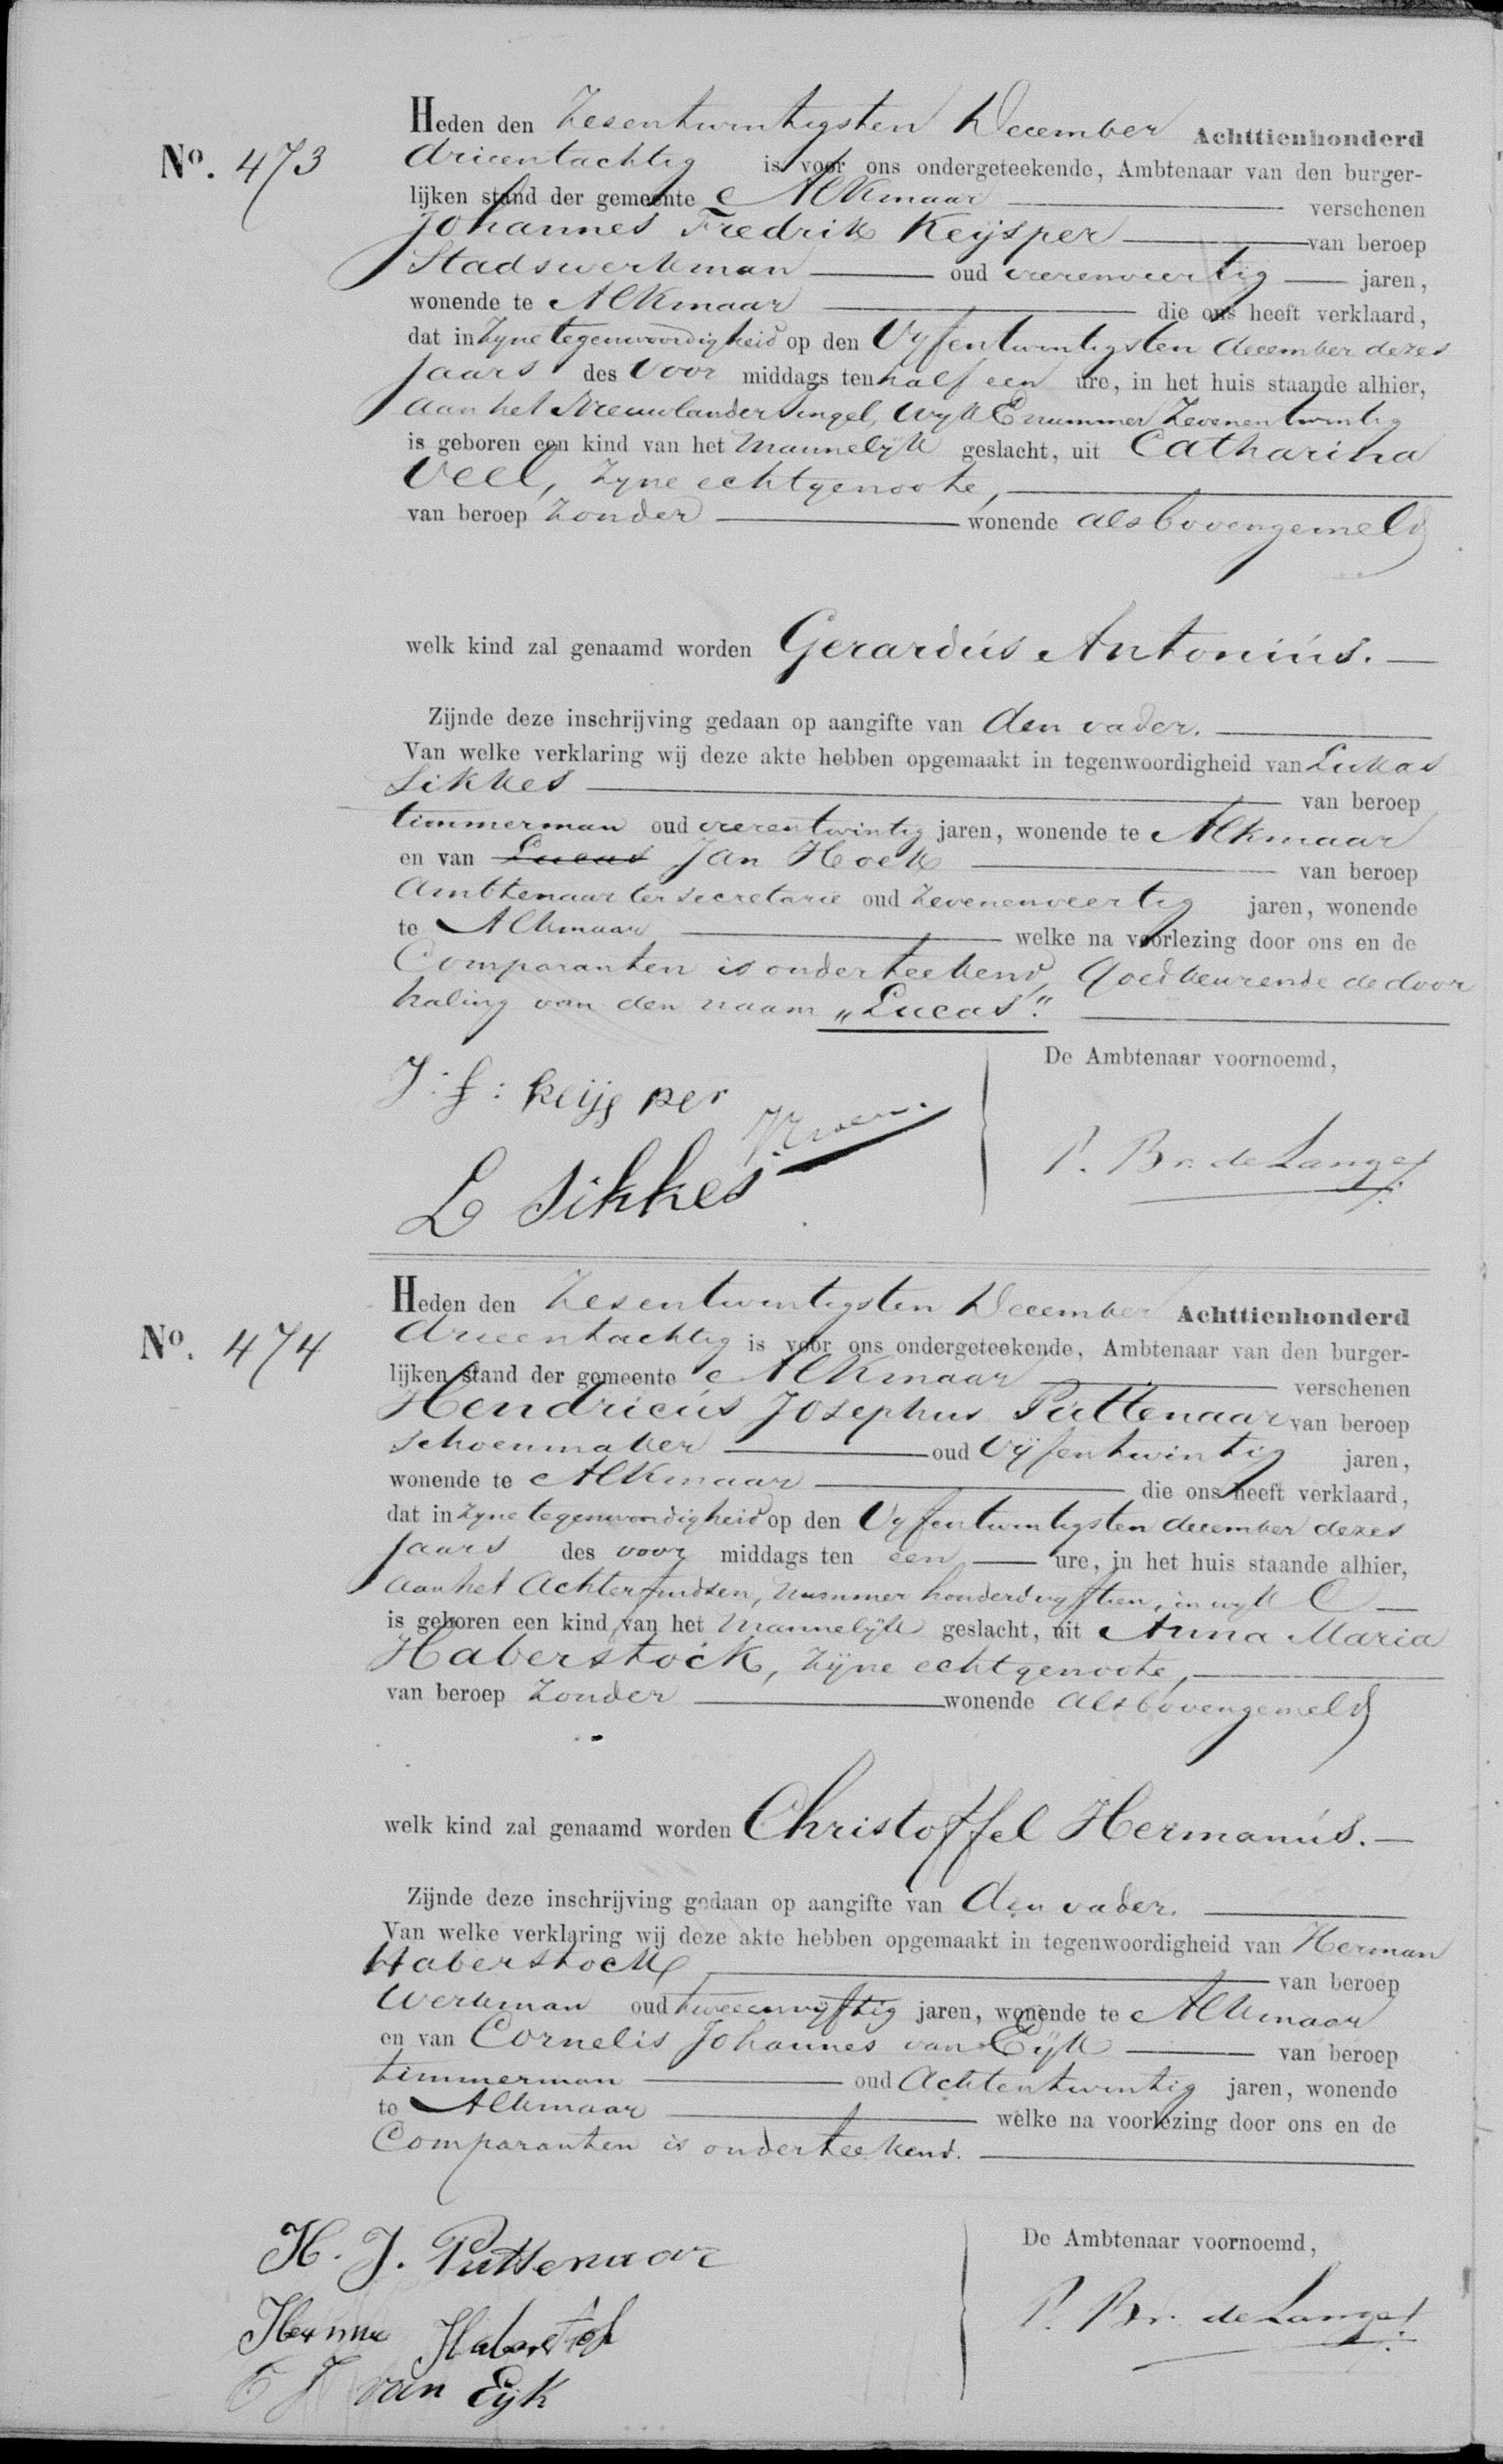 Heden den Zesentwintigsten December Achttienhonderd
No. 473
drieentachtig is voor ons ondergeteekende, Ambtenaar van den burger-
lijken stand der gemeente Alkmaar verschenen
Johannes Fredrik Keijsper van beroep
Stadswerkman oud vierenveertig jaren,
wonende te Alkmaar die ons heeft verklaard,
dat in zyne tegenwoordigheid op den Vyfentwintigsten december dezes
jaars des voor middags ten half een ure, in het huis staande alhier,
aan het Nieuwlander Singel, Wyk E nummer Zevenentwintig
is geboren een kind van het Mannelijk geslacht, uit Catharina
Veel, zyne echtgenoote,
van beroep Zonder wonende als bovengemeld
welk kind zal genaamd worden Gerardus Antonius.
Zijnde deze inschrijving gedaan op aangifte van den vader.
Van welke verklaring wij deze akte hebben opgemaakt in tegenwoordigheid van Lukas
Sikkes van beroep
timmerman oud vierentwintig jaren, wonende te Alkmaar
en van Lucas Jan Hoek van beroep
Ambtenaar ter secretarie oud Zevenenveertig jaren, wonende
te Alkmaar welke na voorlezing door ons en de
Comparanten is onderteekend, Goedkeurende de door
haling van den naam „Lucas".
De Ambtenaar voornoemd,
J: f: keijsper
P. Br. de Lange
L Sikkes
Heden den Zesentwintigsten December Achttienhonderd
No. 474
drieentachtig is voor ons ondergeteekende, Ambtenaar van den burger-
lijken stand der gemeente Alkmaar verschenen
Hendricus Josephus Puttenaar van beroep
Schoenmaker oud Vijfentwintig jaren,
wonende te Alkmaar die ons heeft verklaard,
dat in zyne tegenwoordigheid op den Vyfentwintigsten december dezes
jaars des voor middags ten een ure, in het huis staande alhier,
aan het Achter nummer honderdvyftien, in wyk C
is geboren een kind van het Mannelijk geslacht, uit Anna Maria
Haberstock, zijne echtgenoote,
van beroep Zonder wonende als bovengemeld
welk kind zal genaamd worden Christoffel Hermanus.
Zijnde deze inschrijving gedaan op aangifte van den vader.
Van welke verklaring wij deze akte hebben opgemaakt in tegenwoordigheid van Herman
Haberstock van beroep
Werkman oud tweeenvijftig jaren, wonende te Alkmaar
en van Cornelis Johannes van Eijk van beroep
timmerman oud Achtentwintig jaren, wonende
te Alkmaar welke na voorlezing door ons en de
Comparanten is onderteekend.
De Ambtenaar voornoemd,
H. J. Puttenaar
P. Br. de Lange
Herman Haberstok
C J van Eijk